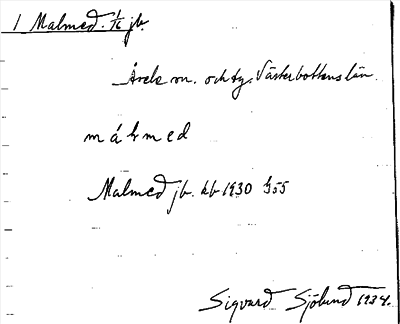 1 Malmed. 1/16 jb.
Åsele sn. och tg. Västerbottens län.
målmed
Malmed jb. kb 1930 b 55
Sigvard Sjölund 1934.